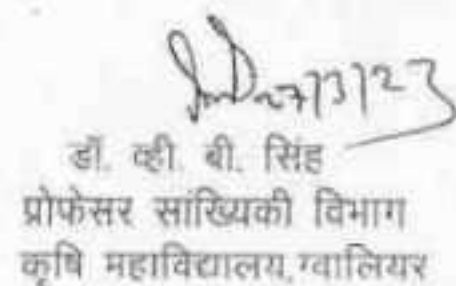 27/3/23
डॉ. व्ही. बी. सिंह
प्रोफेसर सांख्यिकी विभाग
कृषि महाविद्यालय,ग्वालियर